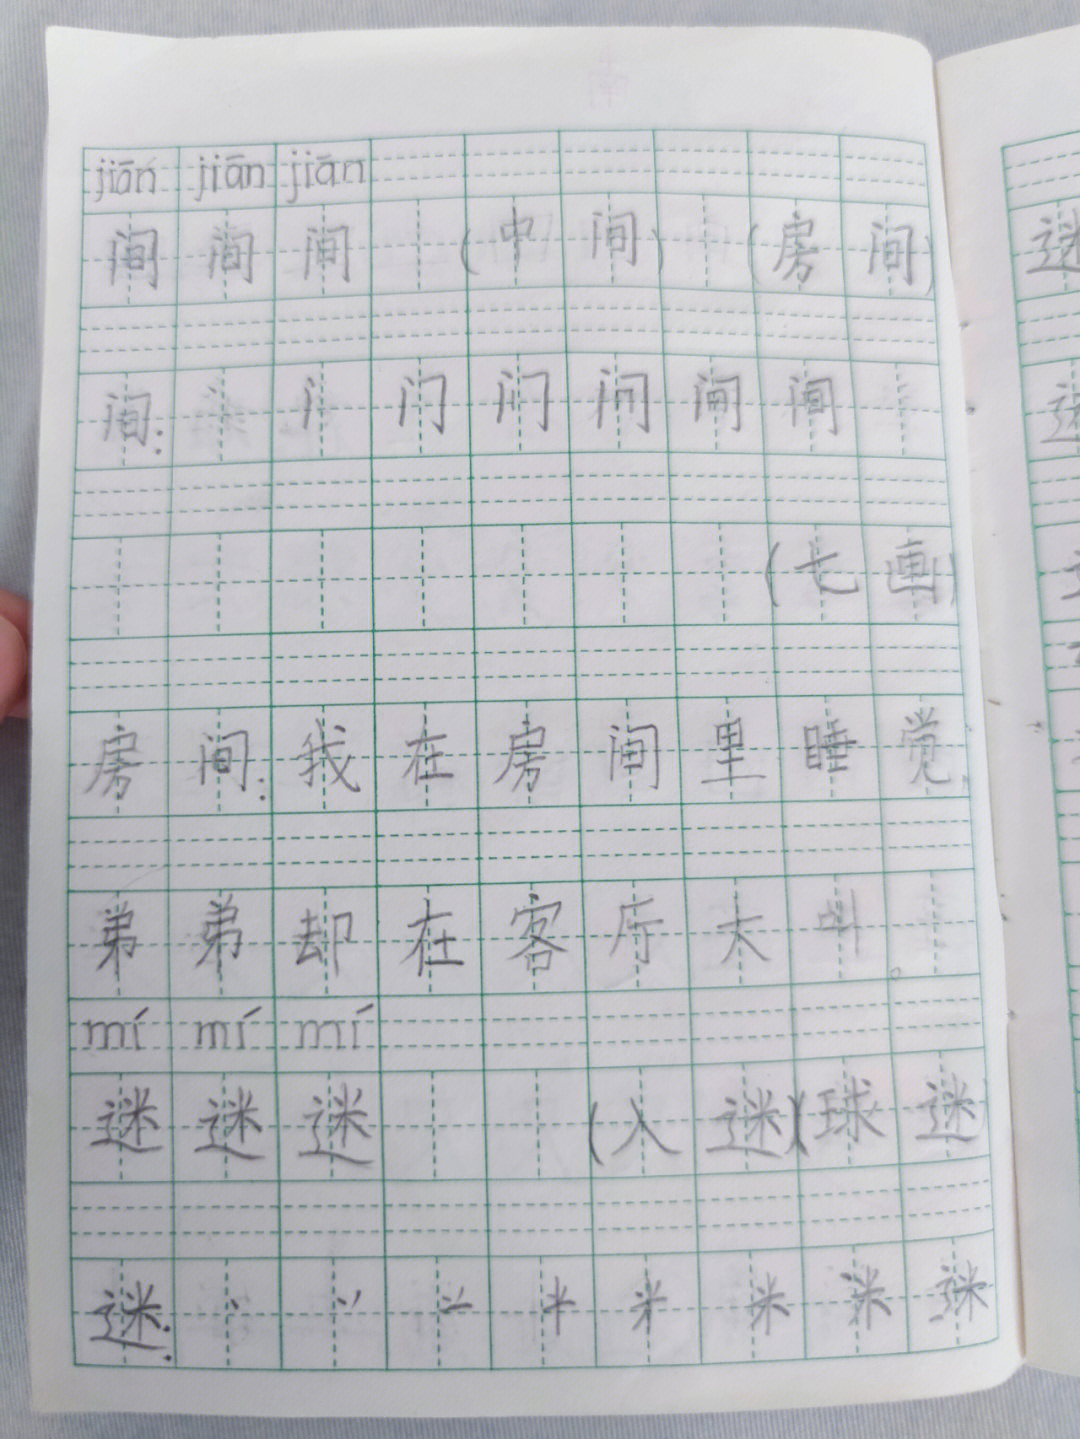 jiān jiān jiān
间 间 间 (中 间) (房 间)
间: 丶 门 门 问 间 间
(七 画)
房 间: 我 在 房 间 里 睡 觉,
弟 弟 却 在 客 厅 大 叫。
mí mí mí
迷 迷 迷 (入 迷)(球 迷)
迷: 丶 丷 米 米 迷
迷
迷